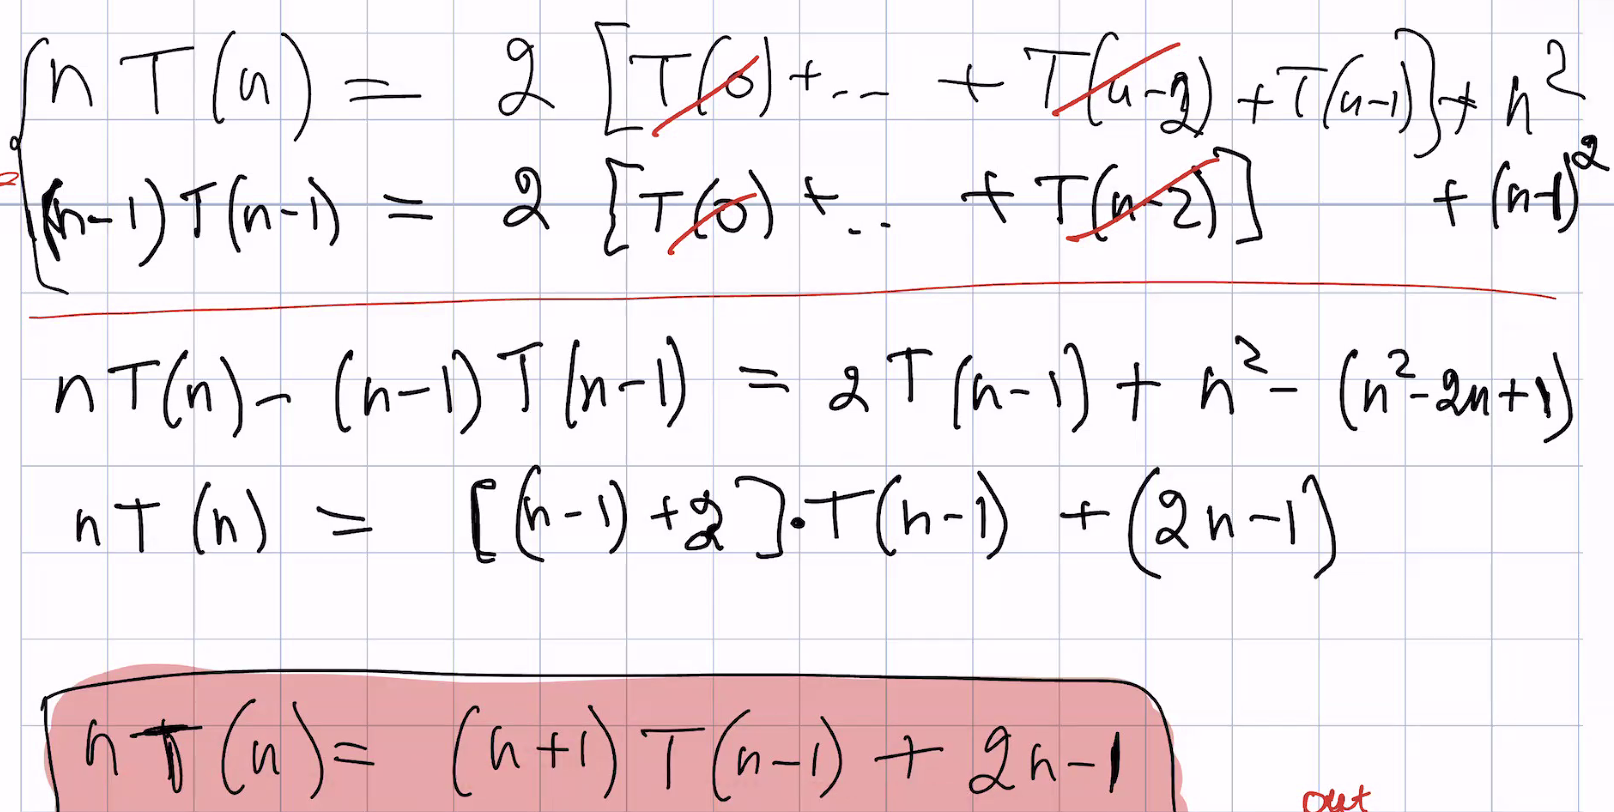 n T(n) = 2 [T(0) + ... + T(n-2) + T(n-1)] + n²
2
(n-1) T(n-1) = 2 [T(0) + .. + T(n-2)] + (n-1)²
nT(n) - (n-1) T(n-1) = 2T(n-1) + n² - (n²-2n+1)
nT(n) = [(n-1)+2]·T(n-1) + (2n-1)
nT(n) = (n+1) T(n-1) + 2n-1
out